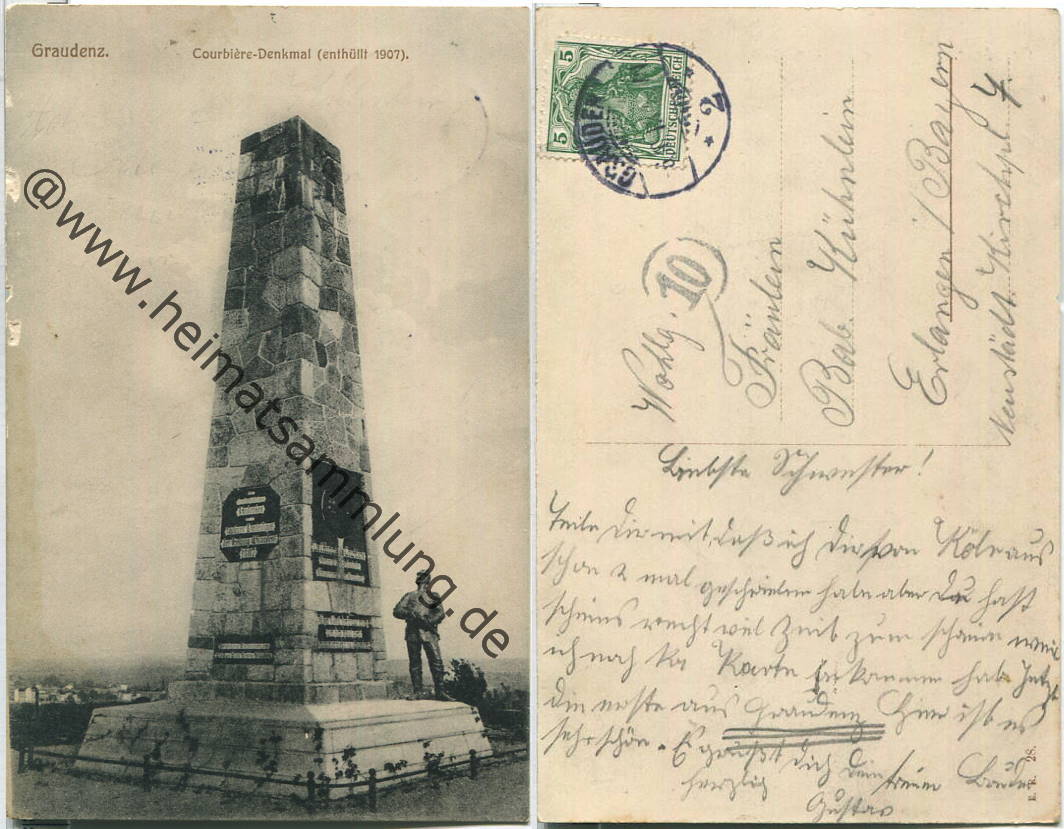 Graudenz.
Courbière-Denkmal (enthüllt 1907).
@www.heimatsammlung.de
5 5
DEUTSCHES REICH
GRAUDENZ
Wohlg. 10
Fräulein
Bab. Kühnlein
Erlangen / Bayern
Neustädt. Kirchpl. 7
Liebste Schwester!
Teile Dir mit, daß ich Dir von Köln aus
schon 2 mal geschrieben habe aber Du hast
scheins recht viel Zeit zum schreiben weil
ich noch ka Karte bekommen hab. Jetzt
die erste aus Graudenz. Hier ist es
sehr schön. Es grüßt dich dein treuer Bruder
herzlich
Gustav
E. R. 28.